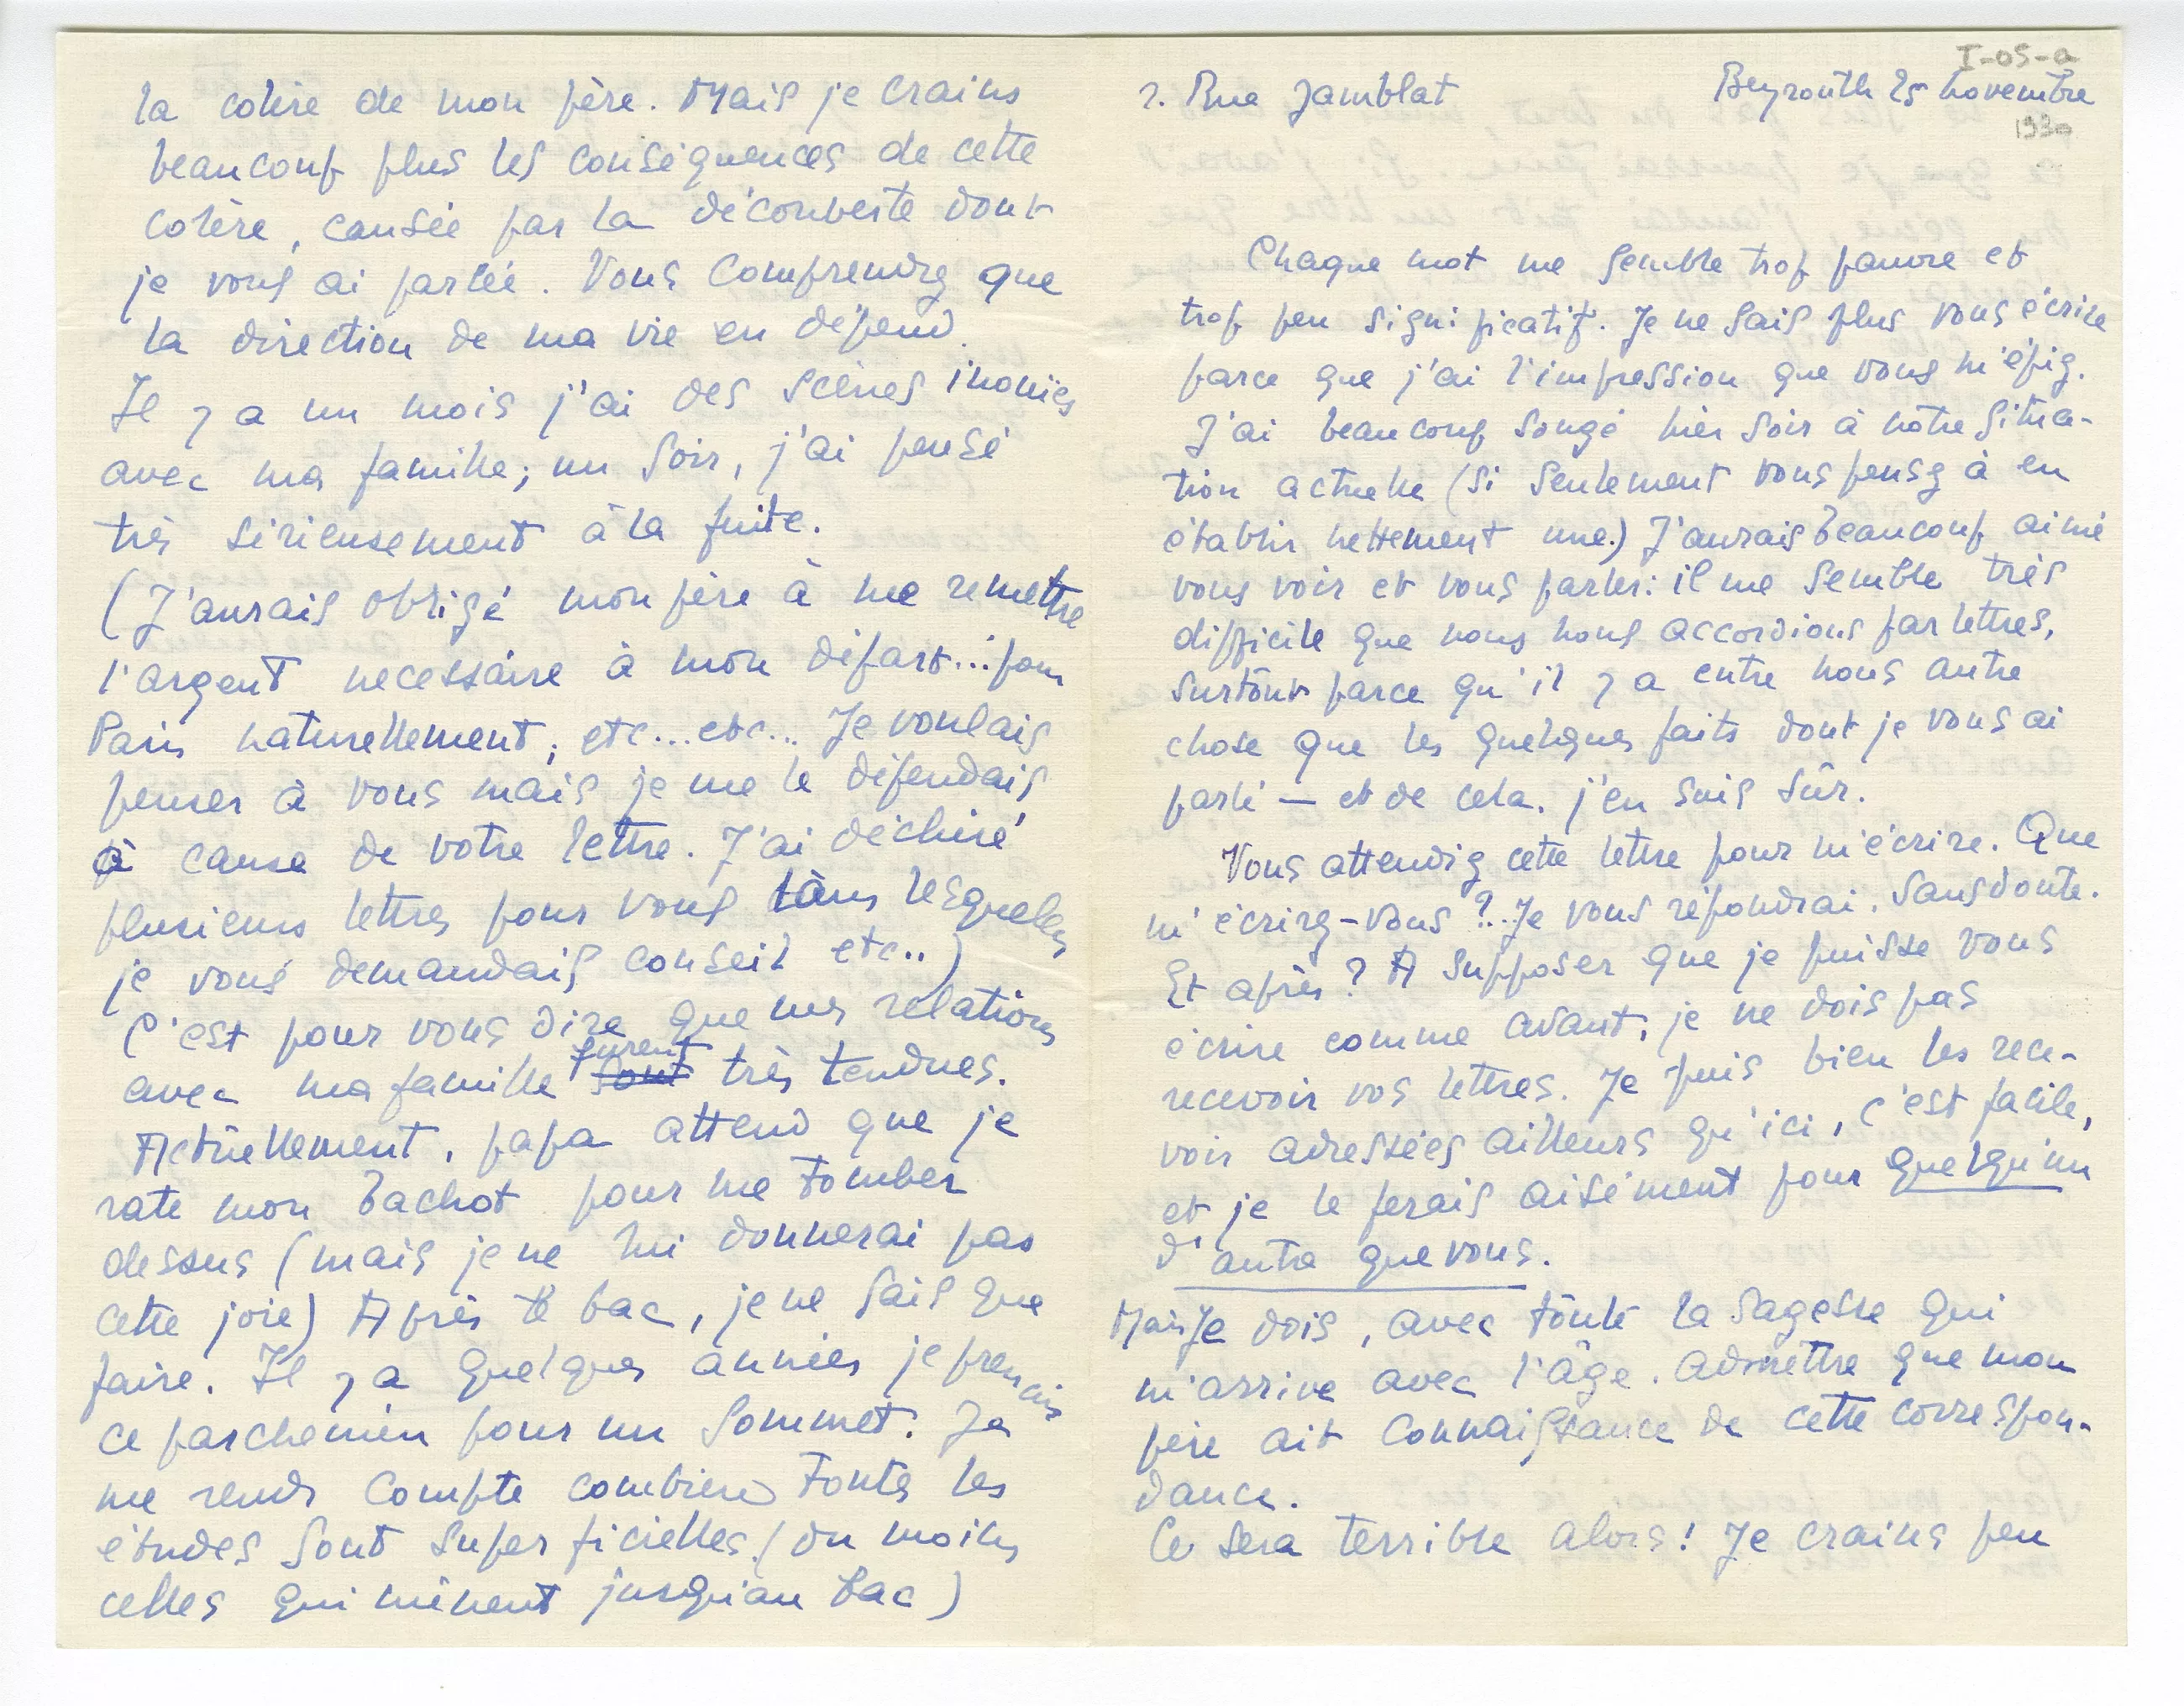 I-05-a
2. Rue Jamblat Beyrouth 25 novembre
1930
Chaque mot me semble trop pauvre et
trop peu significatif. Je ne sais plus vous écrire
parce que j'ai l'impression que vous m'épiez.
J'ai beaucoup songé hier soir à notre situa-
tion actuelle (si seulement vous pensez à en
établir nettement une.) J'aurais beaucoup aimé
vous voir et vous parler: il me semble très
difficile que nous nous accordions par lettres,
surtout parce qu'il y a entre nous autre
chose que les quelques faits dont je vous ai
parlé — et de cela. j'en suis sûr.
Vous attendiez cette lettre pour m'écrire. Que
m'écrirez-vous ?.. Je vous répondrai. Sans doute.
Et après ? A supposer que je puisse vous
écrire comme avant, je ne dois pas
recevoir vos lettres. Je puis bien les rece-
voir adressées ailleurs qu'ici, c'est facile,
et je le ferais aisément pour quelqu'un
d'autre que vous.
Mais Je dois, avec toute la sagesse qui
m'arrive avec l'âge. admettre que mon
père ait connaissance de cette correspon-
dance.
Ce sera terrible alors ! Je crains peu
la colère de mon père. Mais je crains
beaucoup plus les conséquences de cette
colère, causée par la découverte dont
je vous ai parlée. Vous comprendrez que
la direction de ma vie en dépend.
Il y a un mois j'ai des scènes inouïes
avec ma famille; un soir, j'ai pensé
très sérieusement à la fuite.
(J'aurais obligé mon père à me remettre
l'argent necessaire à mon départ... pour
Paris naturellement, etc... etc... Je voulais
penser à vous mais je me le défendais
à cause de votre lettre. J'ai déchiré
plusieurs lettres pour vous dans lesquelles
je vous demandais conseil etc..)
C'est pour vous dire que mes relations
avec ma famille sont furent très tendues.
Actuellement, papa attend que je
rate mon bachot pour me tomber
dessus (mais je ne lui donnerai pas
cette joie) Après le bac, je ne sais que
faire. Il y a quelques années je prenais
ce parchemin pour un sommet. Je
me rends compte combien toutes les
études sont superficielles. (du moins
celles qui mènent jusqu'au bac)